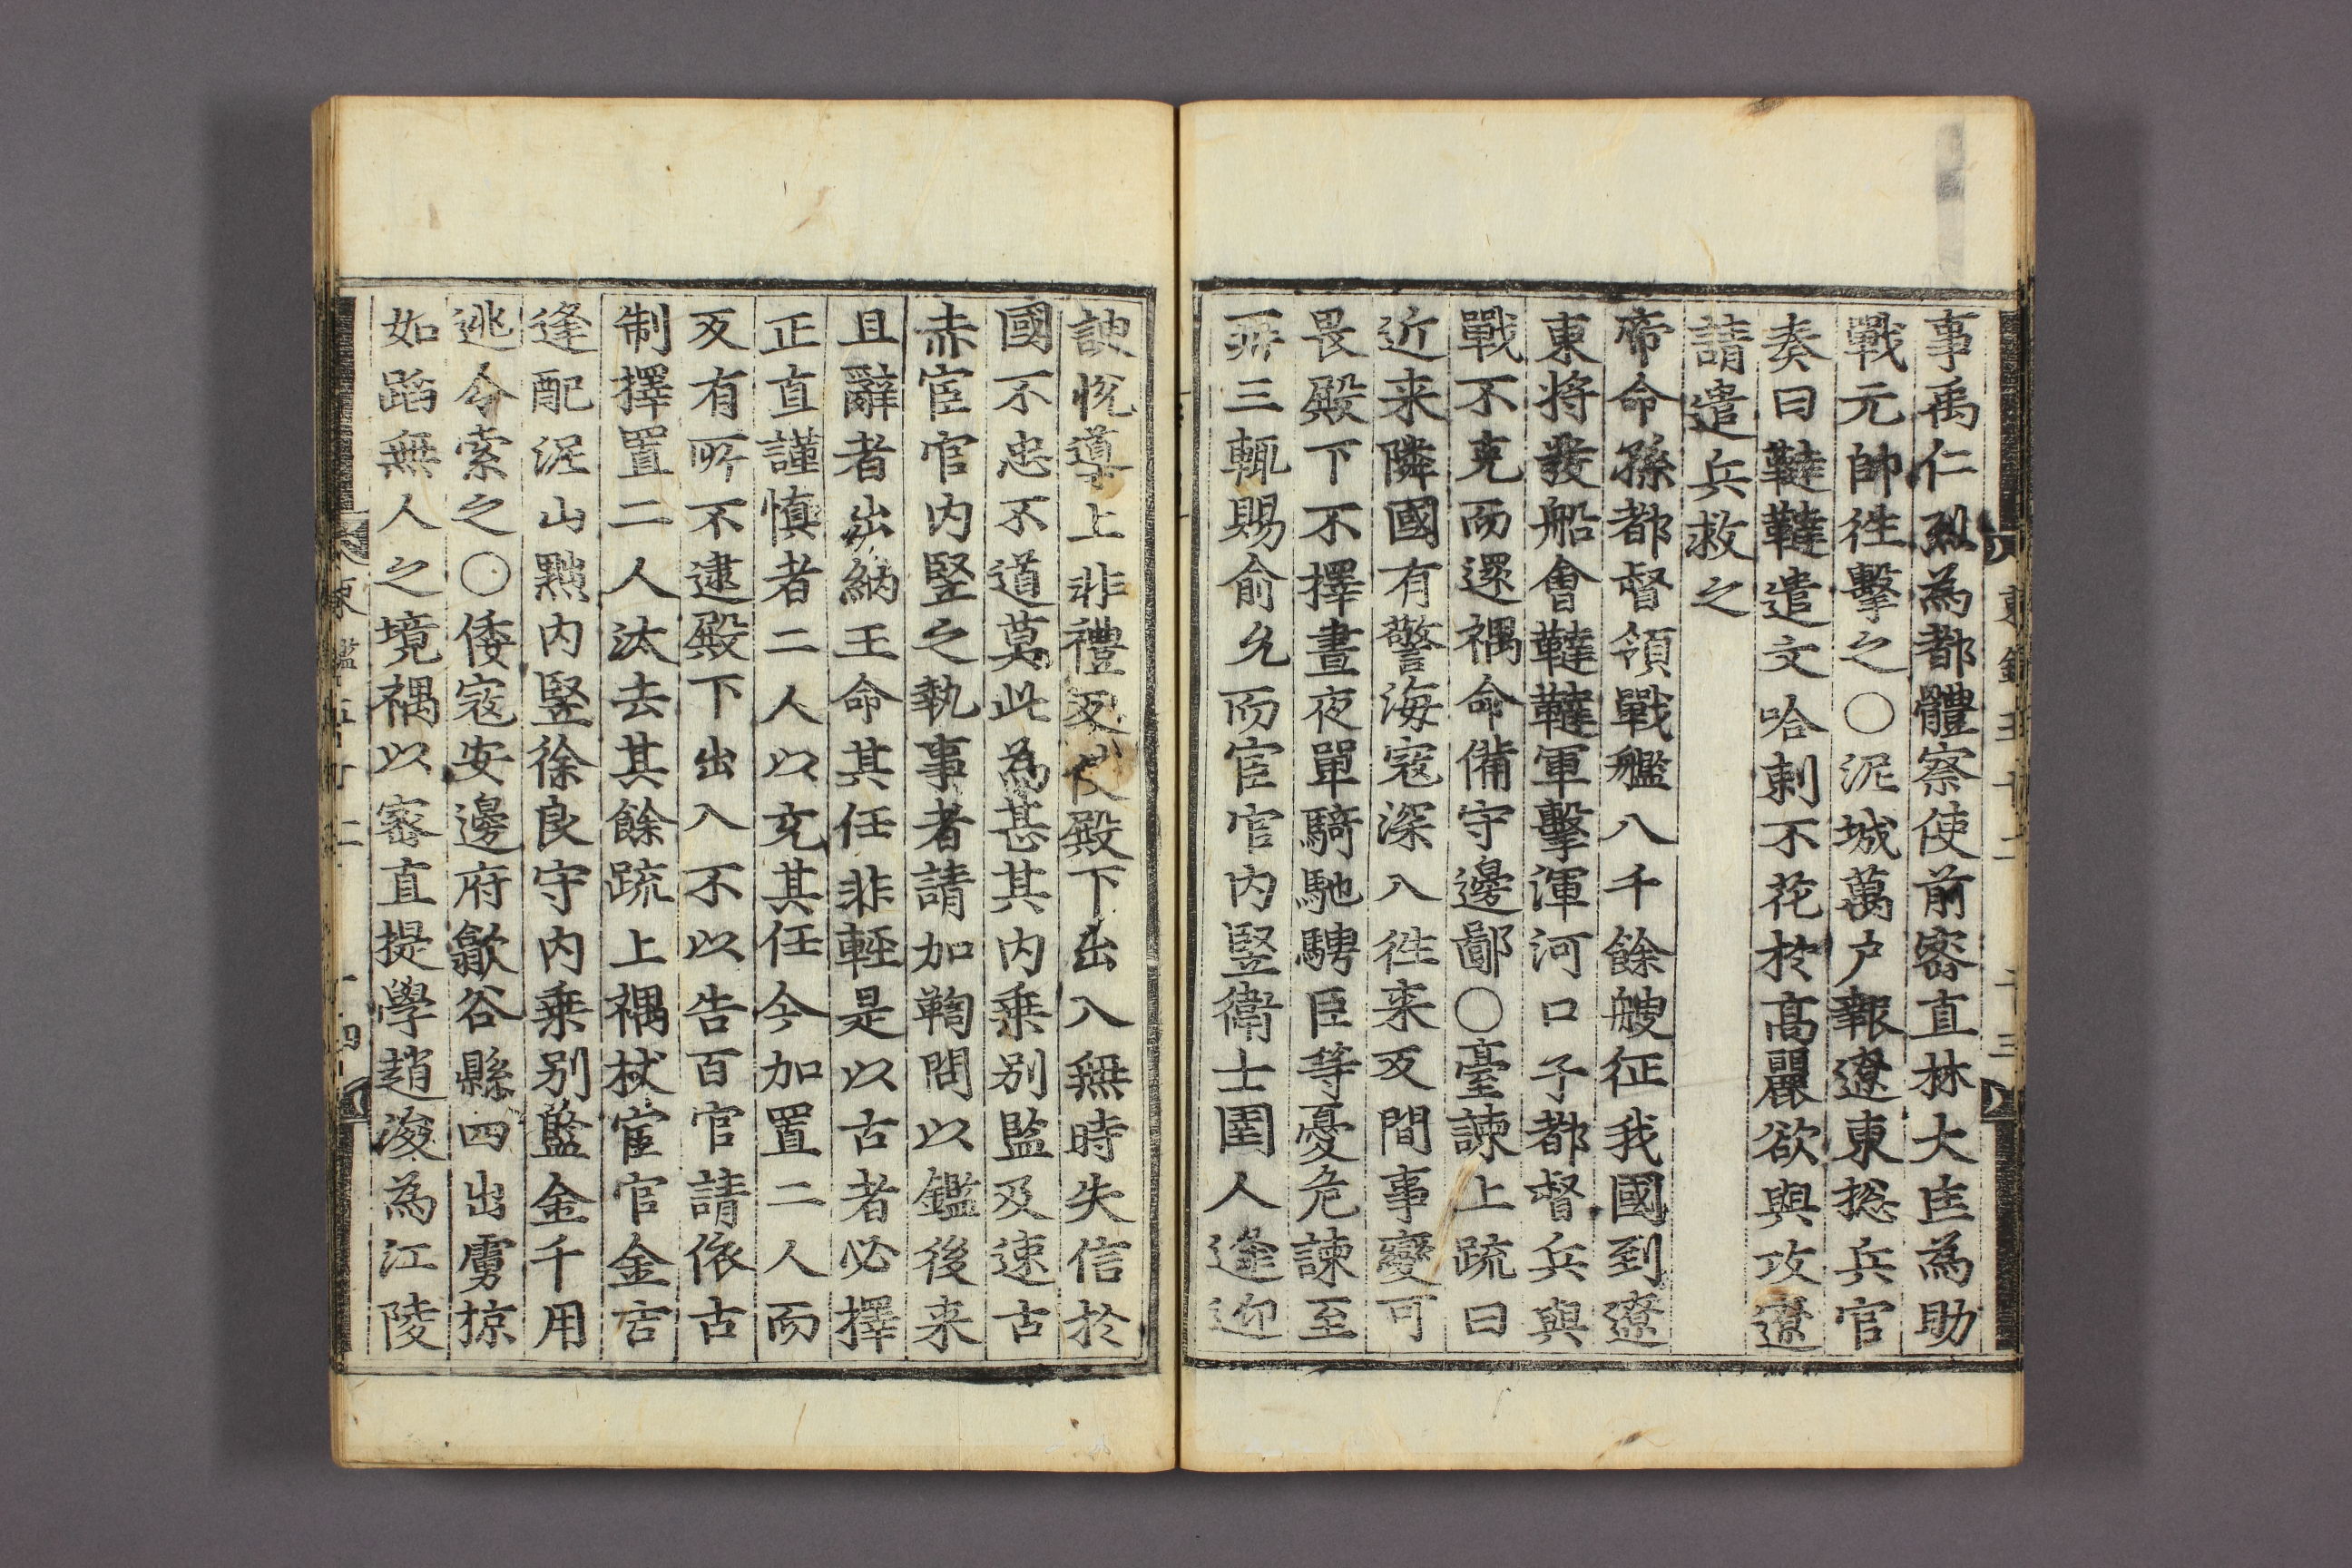 事禹仁烈為都體察使前密直林大匡為助
戰元帥徃擊之○泥城萬户報遼東捴兵官
奏曰韃韃遣文哈剌不花於髙麗欲與攻遼
請遣兵救之
帝命孫都督領戰艦八千餘艘征我國到遼
東將發船會韃韃軍擊渾河口子都督兵與
戰不克而還禑命備守邊鄙○臺諫上疏曰
近来隣國有警海寇深入徃来反間事變可
畏殿下不擇晝夜單騎馳騁臣等憂危諫至
再三輒賜俞允而宦官内竪衛士圉人逢迎
諛悅導上非禮反使殿下出入無時失信於
國不忠不道莫此為甚其内乗别監及速古
赤宦官内竪之執事者請加鞫問以鑑後来
且辭者出納王命其任非輕是以古者必擇
正直謹慎者二人以充其任今加置二人而
反有所不逮殿下出入不以告百官請依古
制擇置二人汰去其餘疏上禑杖宦官金吉
逢配泥山黥内竪徐良守内乗别監金千用
逃令索之○倭寇安邊府歙谷縣四出虜掠
如蹈無人之境禑以密直提學趙浚為江陵